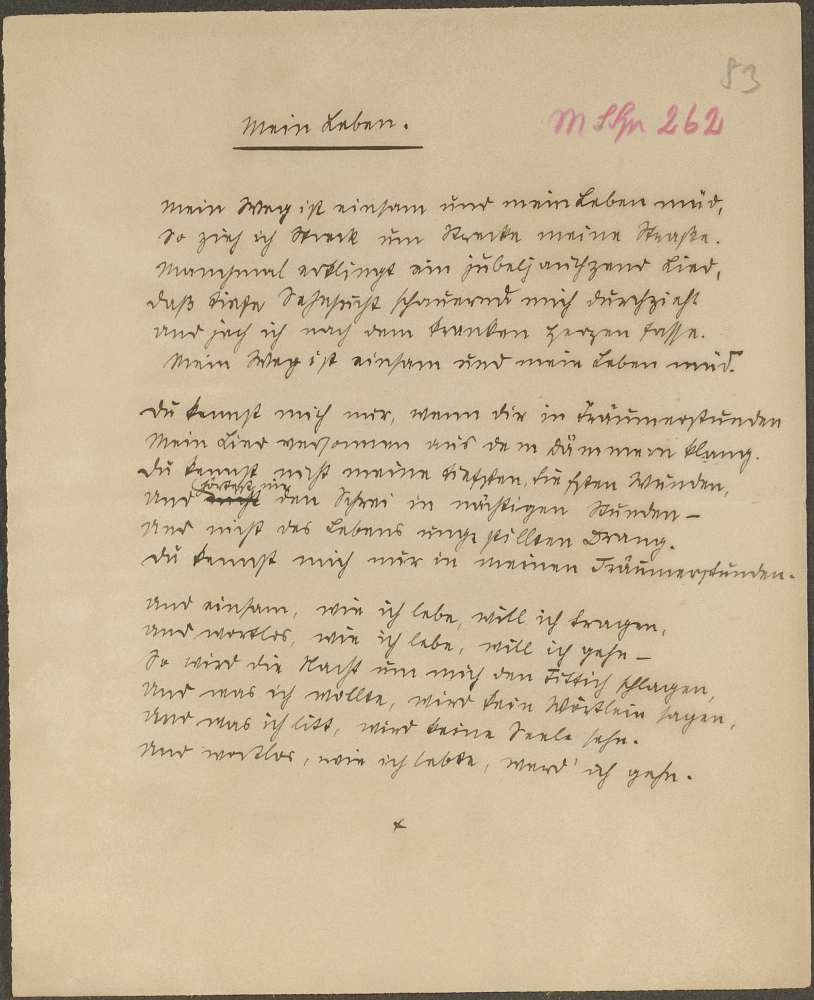 83
M Spr 262
Mein Leben.
Mein Weg ist einsam und mein Leben müd,
So zieh ich Streck um Strecke meine Straße.
Manchmal erklingt ein jubeljauchzend Lied,
Daß tiefe Sehnsucht schauernd mich durchzieht
Und jach ich nach dem kranken Herzen fasse.
Mein Weg ist einsam und mein Leben müd.
Du kennst mich nur, wenn dir in Träumerstunden
Mein Lied versonnen aus dem Dämmern klang.
Du kennst nicht meine tiefsten, tiefsten Wunden,
hörtest nie
Und nicht den Schrei in nächtigen Stunden –
Und nicht des Lebens ungestillten Drang.
Du kennst mich nur in meinen Träumerstunden.
Und einsam, wie ich lebe, will ich tragen,
Und wortlos, wie ich lebe, will ich gehn –
So wird die Nacht um mich den Fittich schlagen,
Und was ich wollte, wird kein Wörtlein sagen,
Und was ich litt, wird keine Seele sehn.
Und wortlos, wie ich lebte, werd' ich gehn.